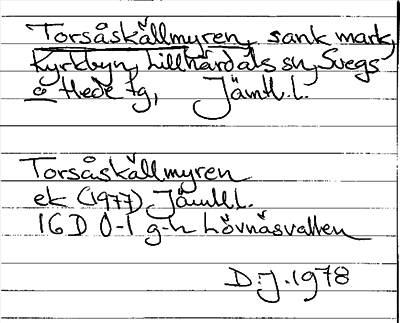 Torsåskällmyren, sank mark,
Kyrkbyn, Lillhärdals sn, Svegs
o Hede tg, Jämtl. l.
Torsåskällmyren
ek (1977) Jämtl. l.
16D 0-1 g-h Lövnäsvallen
D. J. 1978